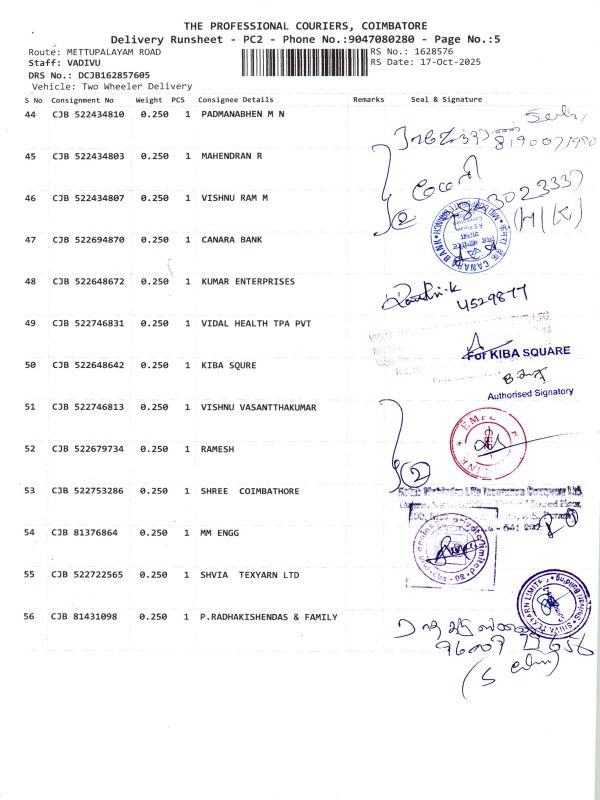 THE PROFESSIONAL COURIERS, COIMBATORE
Delivery Runsheet - PC2 - Phone No.:9047080280 - Page No.:5
Route: METTUPALAYAM ROAD RS No.: 1628576
Staff: VADIVU RS Date: 17-Oct-2025
DRS No.: DCJB162857605
Vehicle: Two Wheeler Delivery
S No Consignment No Weight PCS Consignee Details Remarks Seal & Signature
44 CJB 522434810 0.250 1 PADMANABHEN M N
8190071990
45 CJB 522434803 0.250 1 MAHENDRAN R
46 CJB 522434807 0.250 1 VISHNU RAM M
(H/K)
47 CJB 522694870 0.250 1 CANARA BANK
CANARA BANK
48 CJB 522648672 0.250 1 KUMAR ENTERPRISES
4529877
49 CJB 522746831 0.250 1 VIDAL HEALTH TPA PVT
For KIBA SQUARE
50 CJB 522648642 0.250 1 KIBA SQURE
Authorised Signatory
51 CJB 522746813 0.250 1 VISHNU VASANTTHAKUMAR
52 CJB 522679734 0.250 1 RAMESH
2
53 CJB 522753286 0.250 1 SHREE COIMBATHORE
Life Insurance Company Ltd.
54 CJB 81376864 0.250 1 MM ENGG
55 CJB 522722565 0.250 1 SHVIA TEXYARN LTD
SHIVA TEXYARN LIMITED
56 CJB 81431098 0.250 1 P.RADHAKISHENDAS & FAMILY